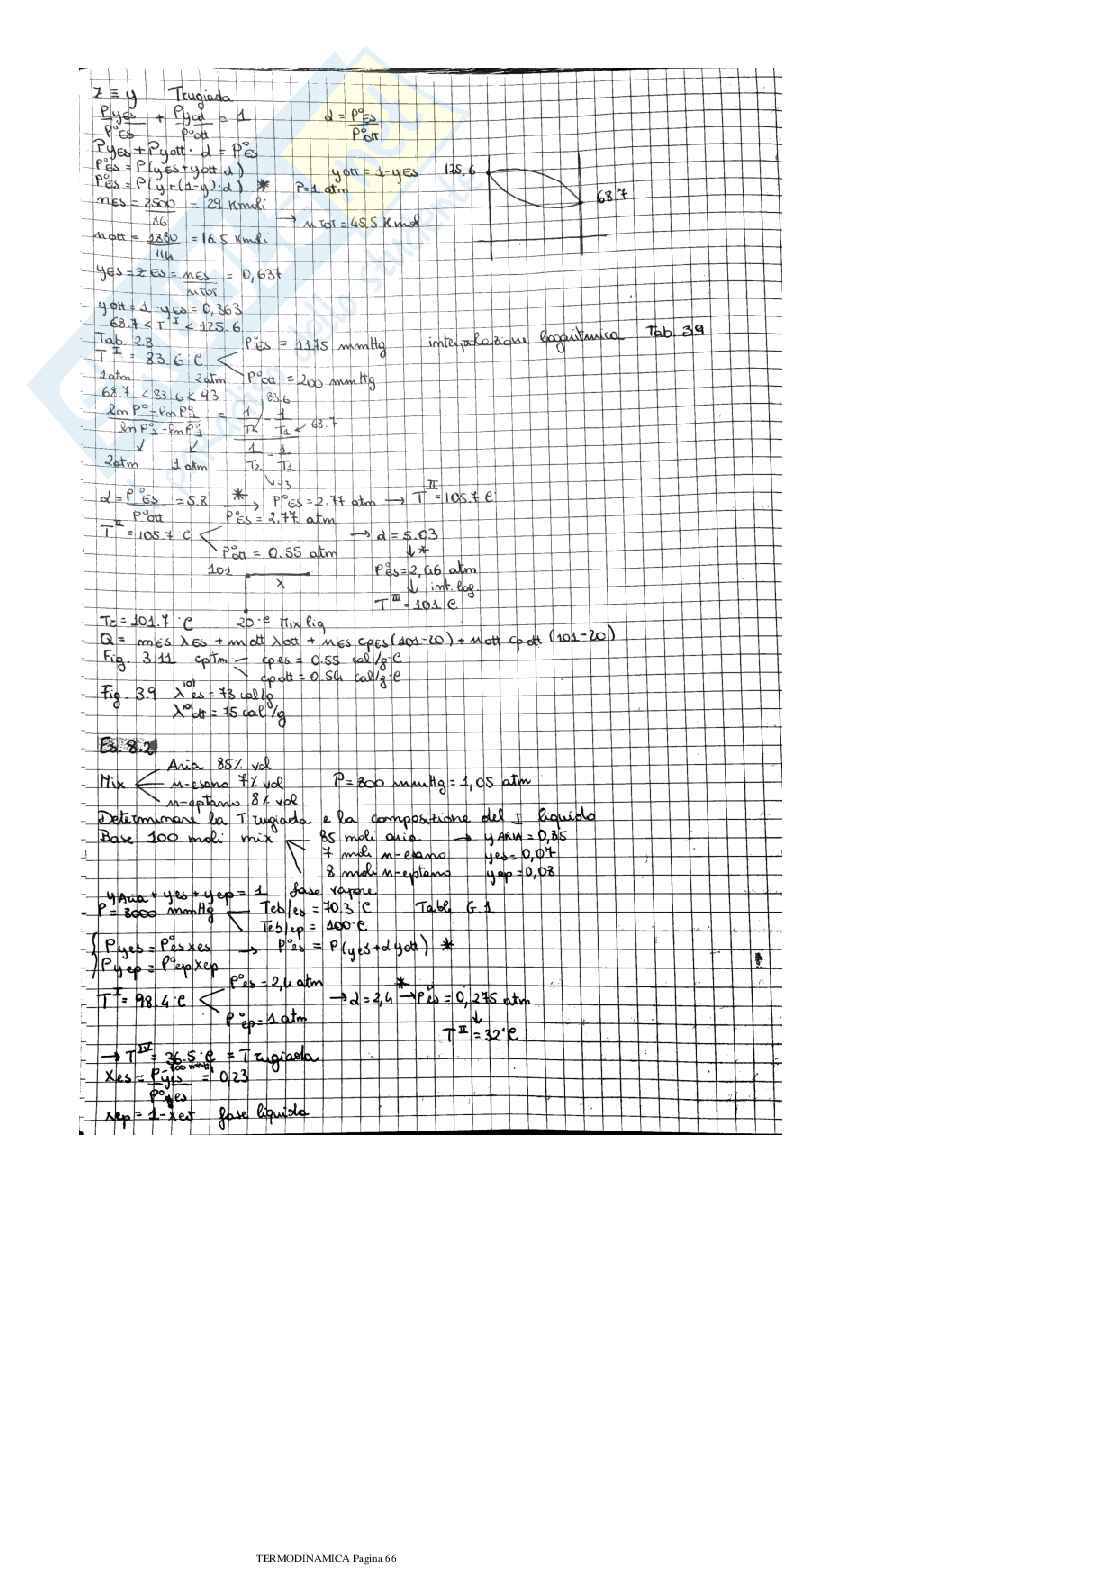 z ≡ y Trugiada
PyES/P°ES + Pyott/P°ott = 1 α = P°ES/P°OTT
PyES + Pyott · α = P°ES
P°ES = P(yES + yott · α) yott = 1 - yES 125,6
P°ES = P(y + (1-y) · α) * P=1 atm 68.7
nES = 2500/86 = 29 Kmoli
→ nTOT = 45,5 Kmol
nott = 1880/114 = 16.5 Kmoli
yES = zES = nES/nTOT = 0,637
yott = 1 - yES = 0,363
68.7 < T^I < 125.6
Tab. 2.3 P°ES = 1175 mmHg interpolazione logaritmica Tab. 3.9
T^I = 83.6°C
1 atm 2 atm P°ott = 200 mmHg
68.7 < 83.6 < 93 83.6
ln P° - ln P°1 / ln P°2 - ln P°1 = 1/Tx - 1/T1 / 1/T2 - 1/T1 ← 63.7
2 atm 1 atm
93
α = P°ES/P°ott = 5.8 * → P°ES = 2.77 atm → T^II = 105.7°C
P°ES = 2,77 atm
T^II = 105.7°C → α = 5.03
P°ott = 0.55 atm ↓*
101 P°ES = 2,46 atm
x ↓ int. log.
T^III = 101°C
Tc = 101.7°C 20°C Mix liq
Q = mES λES + mott λott + nES cpES (101-20) + nott cpott (101-20)
Fig. 3.11 cpTm cpes = 0.55 cal/g°C
cpott = 0.54 cal/g°C
Fig. 3.9 λ^101 es = 73 cal/g
λ^101 ott = 75 cal/g
Es. 8.2
Aria 85% vol
Mix n-esano 7% vol P = 800 mmHg = 1,05 atm
n-eptano 8% vol
Determinare la Trugiada e la composizione del I liquido
Base 100 moli mix 85 moli aria → yARIA = 0,85
7 moli n-esano yes = 0,07
8 moli n-eptano yep = 0,08
yAria + yes + yep = 1 fase vapore
P = 8000 mmHg Teb/es = 70.3°C Table G.1
Teb/ep = 100°C
Pyes = P°es xes → P°es = P(yes + α yott) *
Pyep = P°ep xep
P°es = 2,4 atm
T^I = 98.4°C → α = 2,4 →* P°es = 0,275 atm
P°ep = 1 atm ↓
T^II = 32°C
→ T^IV = 36.5°C = Trugiada
xes = Pyes/P°es = 0,23
xep = 1 - xes fase liquida
TERMODINAMICA Pagina 66